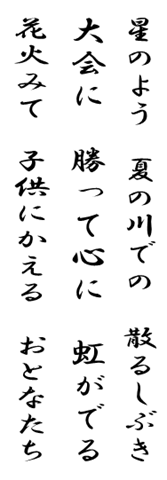 星のよう 夏の川での 散るしぶき
大会に 勝って心に 虹がでる
花火みて 子供にかえる おとなたち